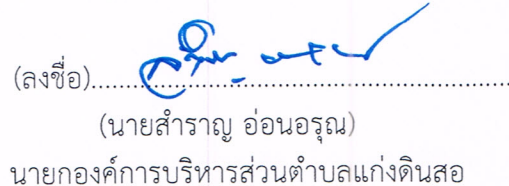 (ลงชื่อ)............................................................
(นายสำราญ อ่อนอรุณ)
นายกองค์การบริหารส่วนตำบลแก่งดินสอ